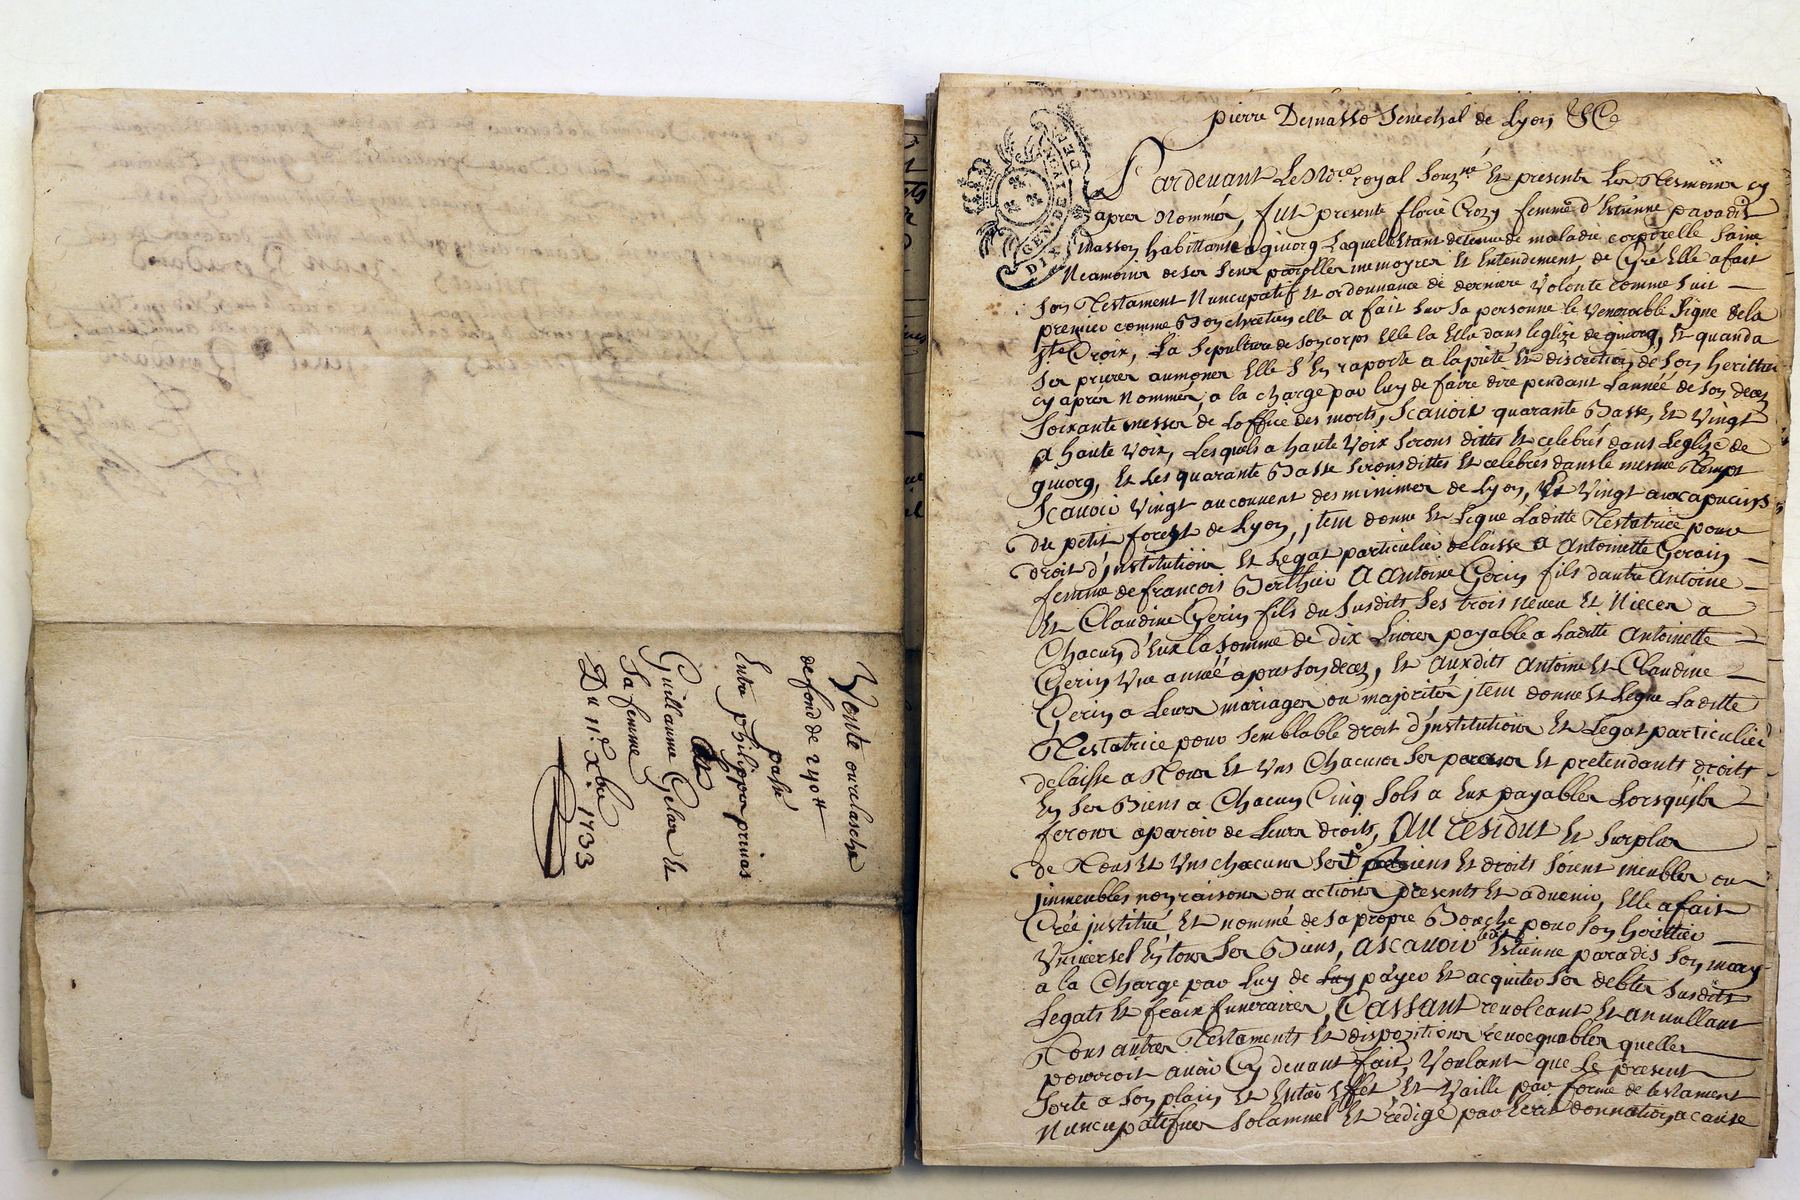 Vente ou relasche
de fond de 240ᵗᵗ
passé
Entre philippe privas
Et
Guillaume Gelas et
Sa femme
Du 11ᵉ Xbre 1733
pierre Demasso Senechal de Lyon &C
GEN DE LYON
DIX DEN
Pardevant Le Nore royal Souzné Et presents Les Tesmoins cy
apres Nommés, fut presente florie Crozy femme d'Estienne paradis
masson habittante a givorg Laquelle Estant detenue de maladie corporelle Saine
Neamoins de Ses Sens parolles memoyres Et Entendement de Gré Elle a fait
Son Testament Nuncupatif Et ordonnance de derniere Volonté comme Suit
premier comme Bon chretien elle a fait Sur Sa personne le Venerable Signe de la
Ste Croix, La Sepulture de Son corps Elle la Elu dans leglize de givorg, Et quand a
Ses prieres aumones Elle S'En raporte a la pieté Et discretion de Son herittier
cy apres Nommés, a la charge par luy de faire dire pendant L'année de Son deces
Soixante messes de Loffice des morts, Scavoir quarante Basse, Et Vingt
a haute Voix, Lesquels a haute Voix Serons dittes Et celebrés dans Leglize de
givorg, Et Les quarante Basse Serons dittes Et celebrés dans le mesme Temps
Scavoir Vingt au couvent des minimes de Lyon, Et Vingt aux capucins
du petit forest de Lyon, jtem donne Et Legue Laditte Testatrice pour
droit d'jnstitution Et Legat particulier delaisse a Antoinette Gerin
femme de francois Berthier A Antoine Gerin fils dautre Antoine
Et Claudine Gerin fils du Susdits Ses trois neveu Et Nieces a
Chacun d'Eux la Somme de dix Livres payable a Laditte Antoinette
Gerin Une année apres Son deces, Et Auxdits Antoine Et Claudine
Gerin a Leurs mariages ou majorités jtem donne Et Legue Laditte
Testatrice pour Semblable droit d'jnstitution Et Legat particulier
delaisse a Tous Et Uns Chacuns Ses parens Et pretendants droits
En Ses Biens a Chacun Cinq Sols a Eux payables Lorsqu'jls
ferons aparoir de Leurs droits, Au residut Et Surplus
de Tous Et Uns chacuns Ses Biens Et droits Soient meubles ou
jmmeubles noms raisons ou actions presents Et advenir, Elle a fait
Créé jnstitué Et nommé de Sa propre Bouche pour Son herittier
Universel En tous Ses Biens, a Scavoir ledit Estienne paradis Son mary
a la Charge par Luy de Luy payer Et acquiter Ses debtes Susdits
Legats Et fraix funeraires, Cassant revoleant Et annullant
Tous autres Testaments Et dispozitions revocquables quelles
pourroit avoir Cy devant fait, Voulant que Le present
Sorte a Son plain Et Entier Effet Et Vaille par forme de testament
Nuncupatif Solamnel Et rédigé par Ecrit donnation a cause